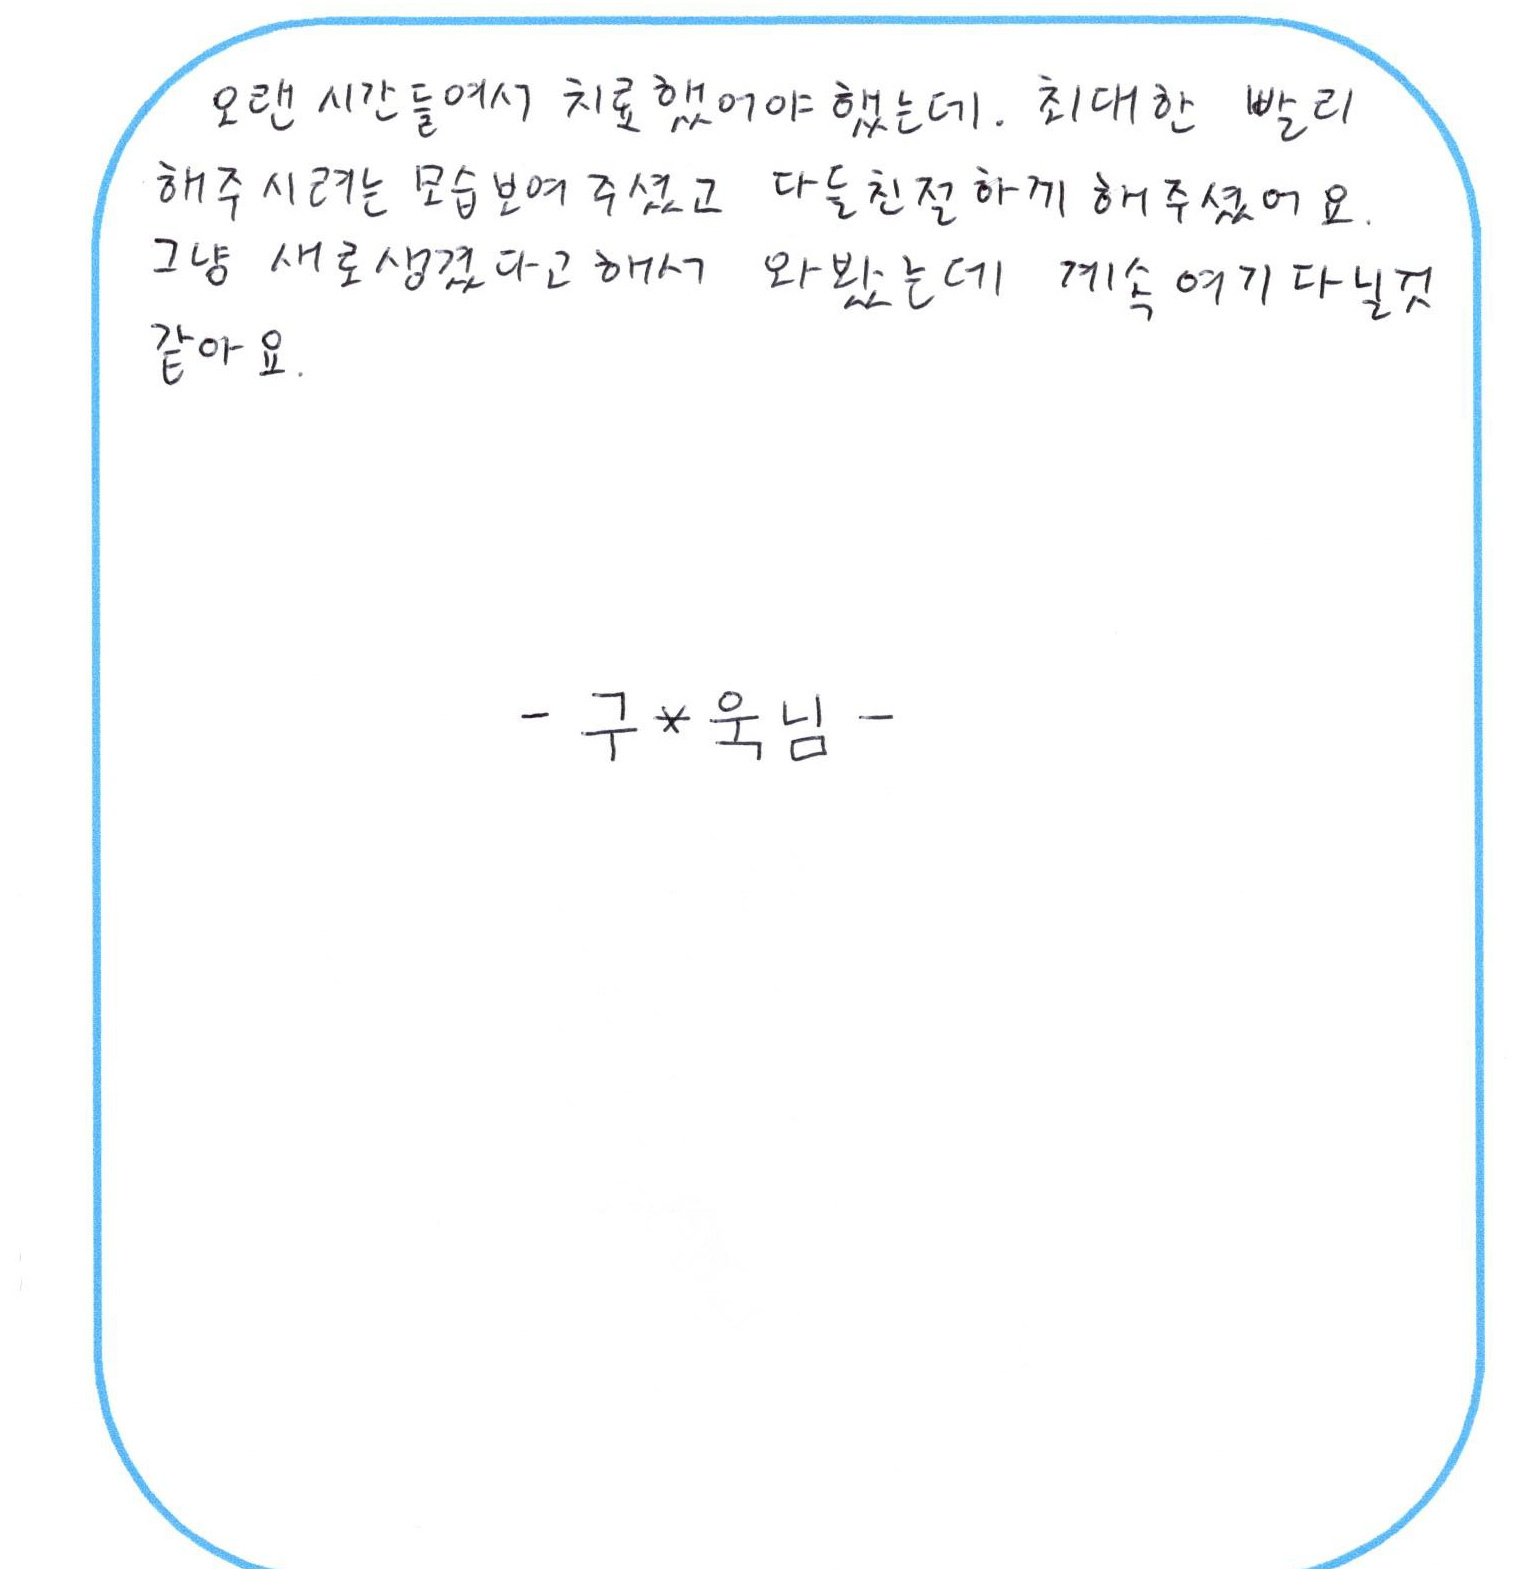 오랜 시간들여서 치료했어야했는데. 최대한 빨리
해주시려는 모습보여주셨고 다들친절하게 해주셨어요.
그냥 새로생겼다고해서 와봤는데 계속여기다닐것
같아요.
- 구*욱님 -